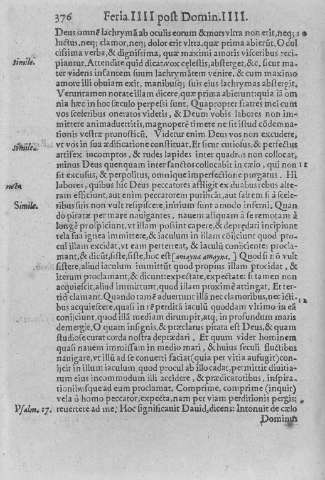 376 Feria IIII post Domin. IIII.
Deus omnẽ lachrymã ab oculis eorum & mors vltra non erit, neq;
luctus, neq; clamor, neq; dolor erit vltra, quæ prima abierũt. O dul
cissima verba, & dignissima, quæ maximi amoris visceribus reci
Simile. piantur. Attendite quid dicat vox cęlestis, absterget, &c. sicut ma
ter videns infantem suum lachrymãtem venire, & cum maximo
amore illi obuiam exit, manibusq́; suis eius lachrymas abstergit.
Veruntamen notate illam dicere, quæ prima abierunt quia iã om
nia hæc in hoc sæculo perpessi sunt. Quapropter fratres mei cum
vos sceleribus oneratos videtis, & Deum vobis labores non im
mittere animaduertitis, magnopere timere ne sit istud cõdemna-
tionis vestræ pronosticũ. Videtur enim Deus vos non excudere,
Simile. vt vos in sua ædificatione constituat. Et sicut curiosus, & perfectus
artifex incomptos, & rudes lapides inter quadros non collocat,
minus Deus quenquam inter sanctos collocabit in cælo, qui non
sit excusus, & perpolitus, omnique imperfectione purgatus. Hi
nota labores, quibus hic Deus peccatores affligit ex duabus rebus alte-
ram efficiunt, aut enim peccatorem purificãt, aut saltem si à scele-
Simile. ribus suis non vult resipiscere, initium sunt à modo inferni. Quan
do piratæ per mare nauigantes, nauem aliquam à se remotam à
longè prospiciunt, vt illam possint capere, & deprædari incipiunt
tela sua ignea immittere, & iaculum in illam coniiciunt quod pro-
cul illam excidat, vt eam perterreat, & iaculũ coniiciente procla-
mant, & dicũt, siste, siste, hoc est [amayna amayna.] Quod si nõ vult
sistere, aliud iaculum immittit quod propius illam procidat, &
iterum proclamant, & dicunt expectate, expectate: si tamen non
acquiescit, aliud immittunt, quod illam proximè attingat. Et ter-
tiò clamant. Quando tamẽ aduertunt illã nec clamoribus, nec icti-
bus acquiescere, quasi in rẽ perditã iaculũ quoddam vltimo in eã
conijciunt, quod illã mediam dirumpit, atq; in profundum maris
demergit. O quam insignis, & præclarus pirata est Deus, & quam
studiose curat corda nostra deprædari. Et quum videt hominem
quasi nauem immissam in medio mari, & huius seculi fluctibus
nauigare, vt illũ ad se conuerti faciat (quia per vitia aufugit) con-
iicit in illum iaculum quod procul ab illo cadat, permittit diuitia-
rum eius incommodum illi accidere, & prædicatoribus, inspira-
tionibusque ad eam proclamat. Comprime, comprime (inquit)
vela ô homo peccator, expecta, nam per viam perditionis pergis:
Psalm. 17. reuertere ad me; Hoc significauit Dauid, dicens: Intonuit de cælo
Dominus